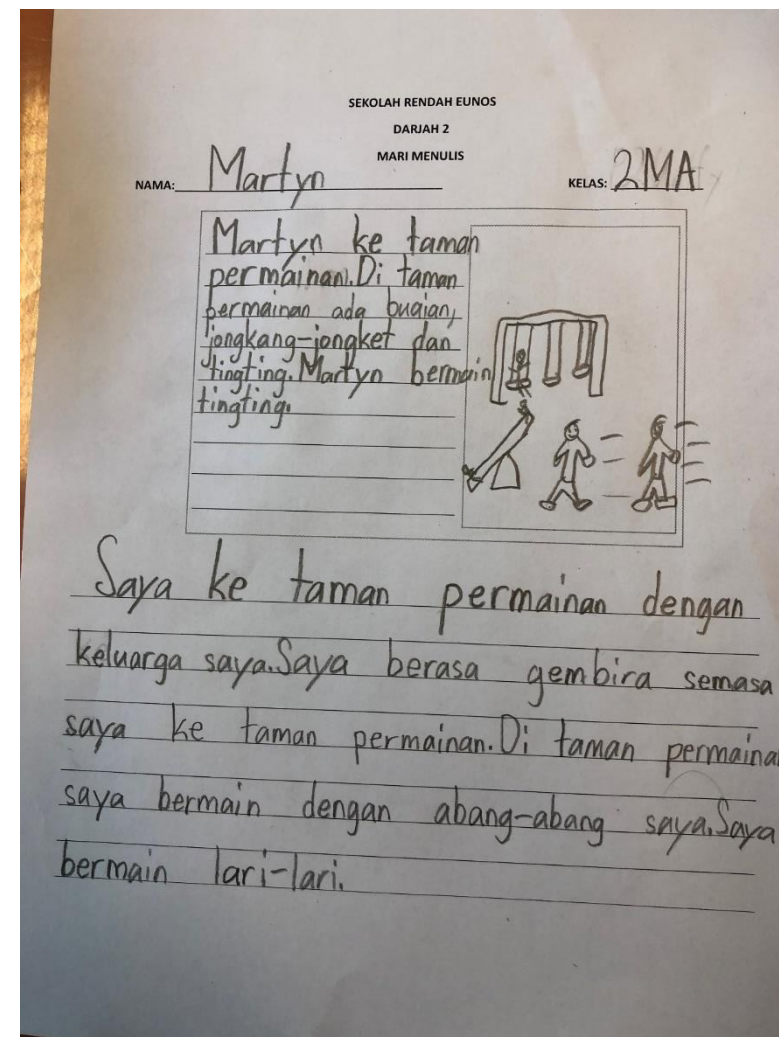 SEKOLAH RENDAH EUNOS
DARJAH 2
MARI MENULIS
NAMA: Martyn KELAS: 2MA
Martyn ke taman
permainan. Di taman
permainan ada buaian,
jongkang-jongket dan
tingting. Martyn bermain
tingting.
Saya ke taman permainan dengan
keluarga saya. Saya berasa gembira semasa
saya ke taman permainan. Di taman permaina
saya bermain dengan abang-abang saya. Saya
bermain lari-lari.